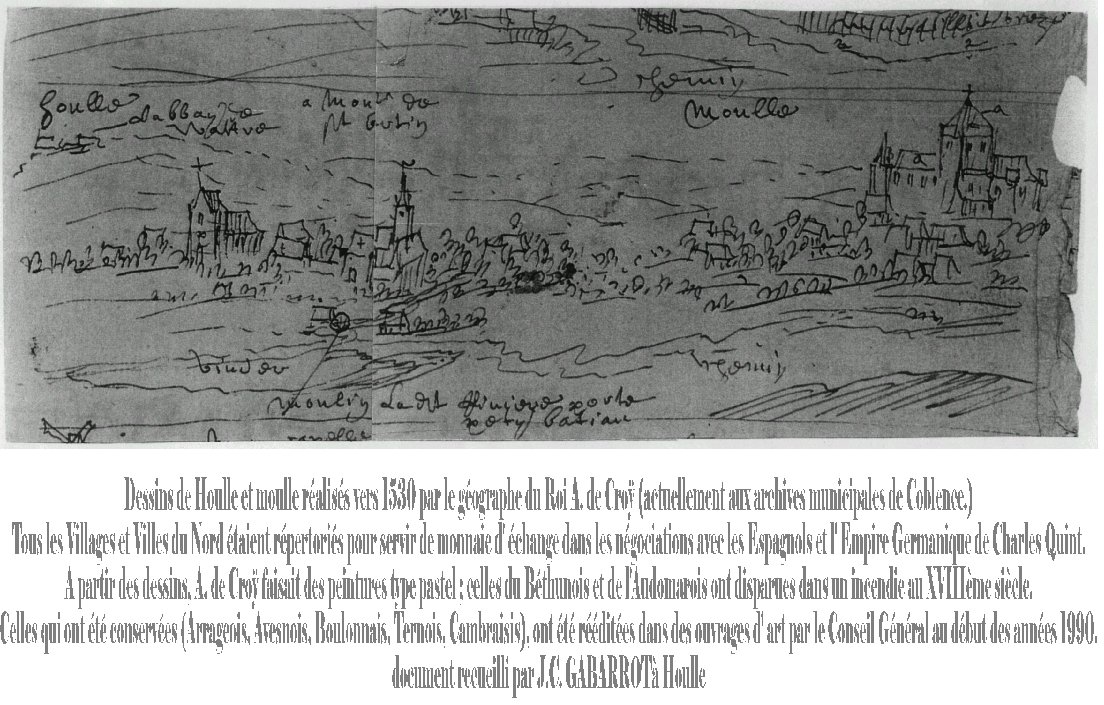 Houlle
Moulle
Dessins de Houlle et moulle réalisés vers 1530 par le géographe du Roi A. de Croÿ (actuellement aux archives municipales de Coblence.)
Tous les Villages et Villes du Nord étaient répertoriés pour servir de monnaie d' échange dans les négociations avec les Espagnols et l' Empire Germanique de Charles Quint.
A partir des dessins, A. de Croÿ faisait des peintures type pastel ; celles du Béthunois et de l'Audomarois ont disparues dans un incendie au XVIIIème siècle.
Celles qui ont été conservées (Arrageois, Avesnois, Boulonnais, Ternois, Cambraisis), ont été rééditées dans des ouvrages d' art par le Conseil Général au début des années 1990.
document recueilli par J.C. GABARROT à Houlle